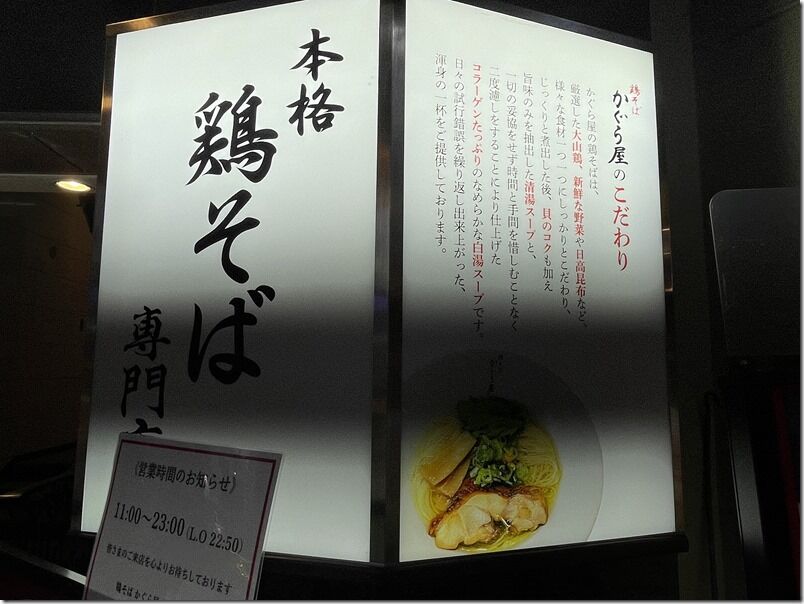 本格
鶏そば
専門店
鶏そば
かぐら屋のこだわり
かぐら屋の鶏そばは、
厳選した大山鶏、新鮮な野菜や日高昆布など、
様々な食材一つ一つにしっかりとこだわり、
じっくりと煮出した後、貝のコクも加え
旨味のみを抽出した清湯スープと、
一切の妥協をせず時間と手間を惜しむことなく
二度濾しをすることにより仕上げた
コラーゲンたっぷりのなめらかな白湯スープです。
日々の試行錯誤を繰り返し出来上がった、
渾身の一杯をご提供しております。
《営業時間のお知らせ》
11:00～23:00 (L.O 22:50)
皆さまのご来店を心よりお待ちしております
鶏そば かぐら屋